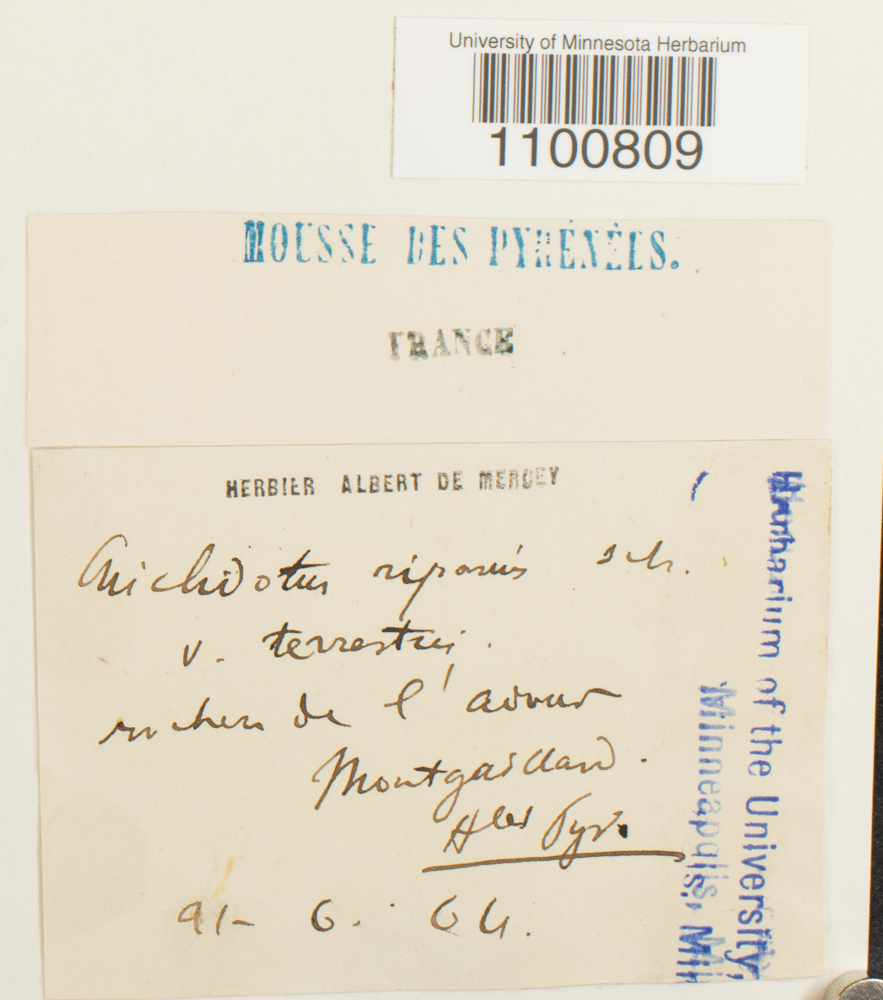 University of Minnesota Herbarium
1100809
MOUSSE DES PYRÉNÉES.
FRANCE
HERBIER ALBERT DE MERCEY
riparius sch.
v. terrestris.
de l'adour
Montgaillard.
Htes Pyr.
6. 64.
Herbarium of the University,
Minneapolis, Min